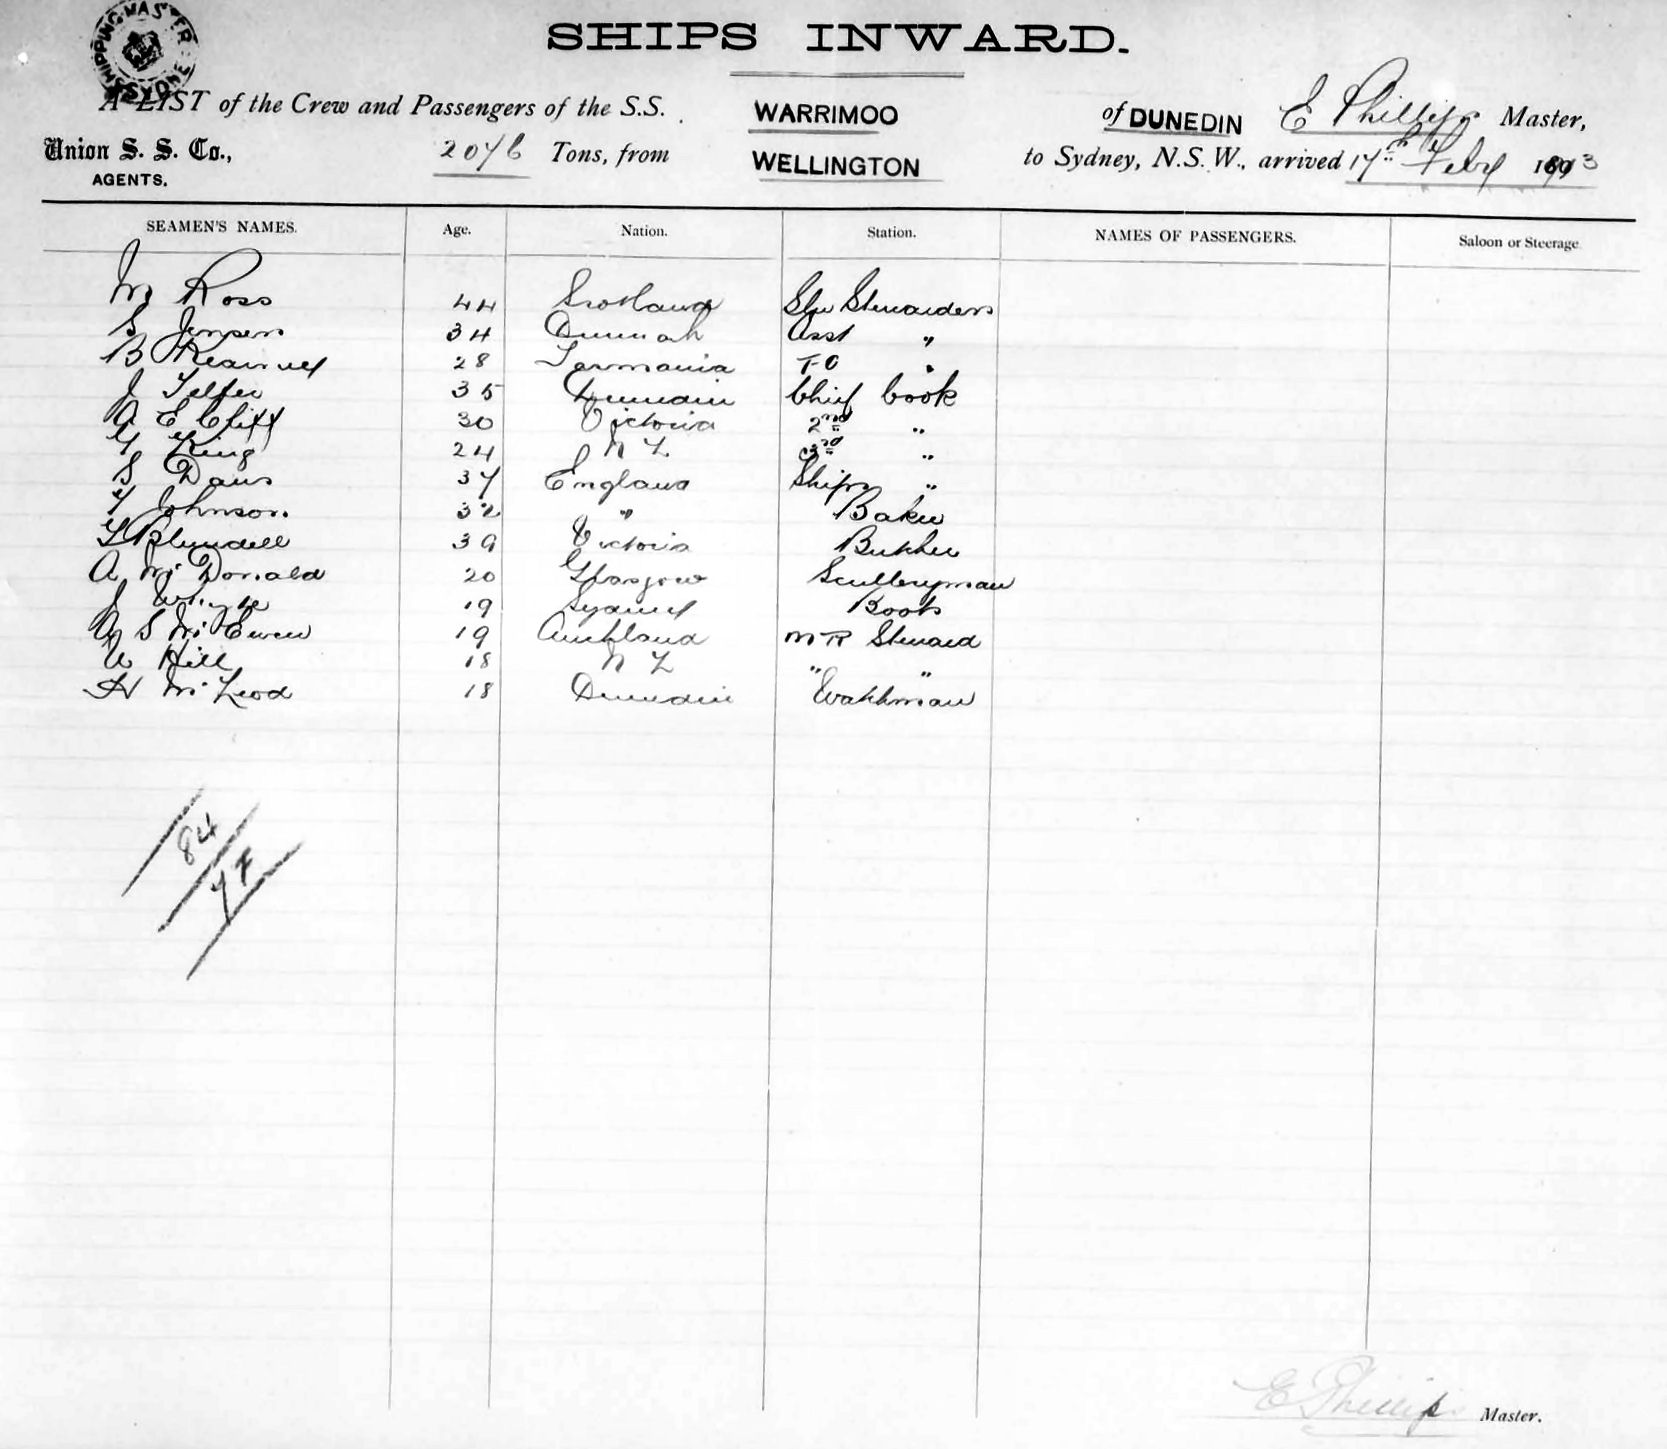 SHIPPING MASTER SYDNEY
SHIPS INWARD.
A LIST of the Crew and Passengers of the S.S. WARRIMOO of DUNEDIN E Phillips Master,
Union S. S. Co., 2076 Tons, from WELLINGTON to Sydney, N.S.W., arrived 17th Feby 1913
AGENTS.
SEAMEN'S NAMES. Age. Nation. Station. NAMES OF PASSENGERS. Saloon or Steerage
M Ross 44 Scotland Stewardess
S Jensen 34 Denmark Asst "
B 28 Tasmania "
J Telfer 35 Dunedin Chief Cook
A E Cliff 30 Victoria 2nd "
G King 24 N Z 3rd "
S Davis 37 England Ships "
F Johnson. 32 " Baker
Blundell 39 Victoria Butcher
A McDonald 20 Glasgow Sculleryman
J Whyte 19 Sydney Boots
A S McEwen 19 Auckland M R Steward
W Hill 18 N Z " "
H McLeod 18 Dunedin Watchman
84
E Phillips Master.